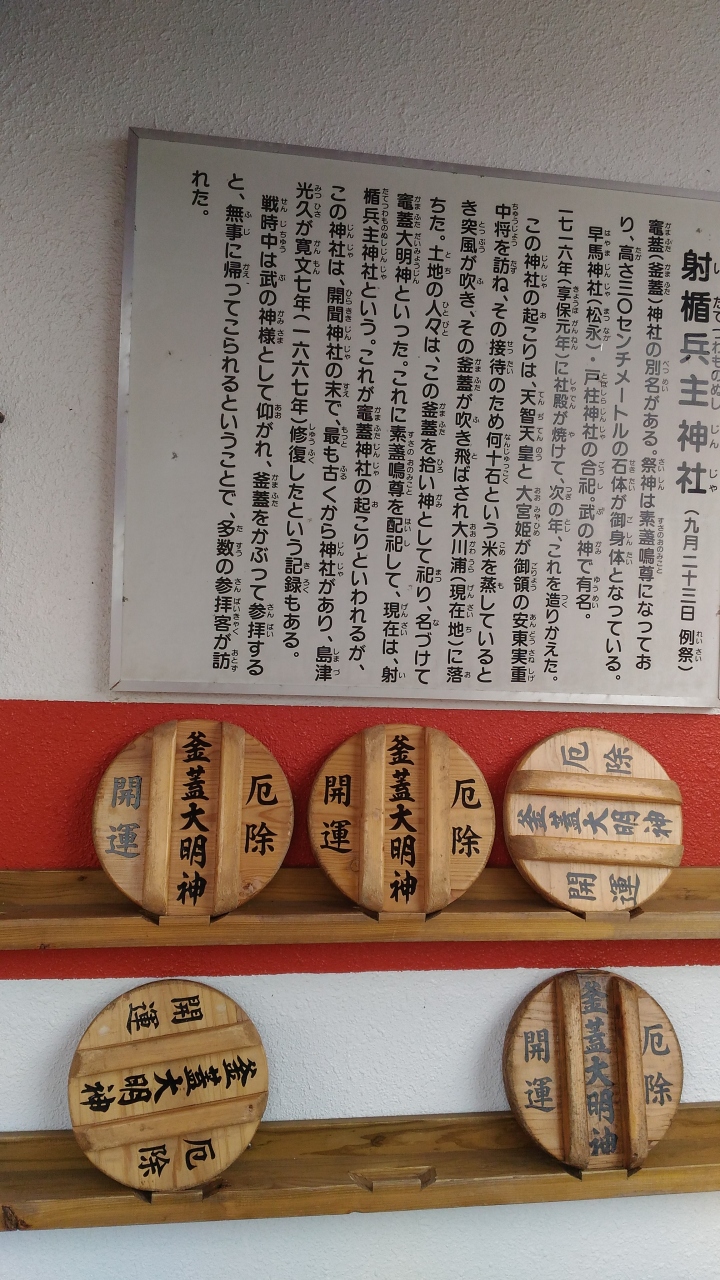 射楯兵主神社 (九月二十三日 例祭)
竈蓋(釜蓋)神社の別名がある。祭神は素盞鳴尊になってお
り、高さ三〇センチメートルの石体が御身体となっている。
早馬神社(松永)・戸柱神社の合祀。武の神で有名。
一七一六年(享保元年)に社殿が焼けて、次の年、これを造りかえた。
この神社の起こりは、天智天皇と大宮姫が御領の安東実重
中将を訪ね、その接待のため何十石という米を蒸していると
き突風が吹き、その釜蓋が吹き飛ばされ大川浦(現在地)に落
ちた。土地の人々は、この釜蓋を拾い神として祀り、名づけて
竈蓋大明神といった。これに素盞鳴尊を配祀して、現在は、射
楯兵主神社という。これが竈蓋神社の起こりといわれるが、
この神社は、開聞神社の末で、最も古くから神社があり、島津
光久が寛文七年(一六六七年)修復したという記録もある。
戦時中は武の神様として仰がれ、釜蓋をかぶって参拝する
と、無事に帰ってこられるということで、多数の参拝客が訪
れた。
厄除
釜蓋大明神
開運
厄除
釜蓋大明神
開運
厄除
釜蓋大明神
開運
厄除
釜蓋大明神
開運
厄除
釜蓋大明神
開運